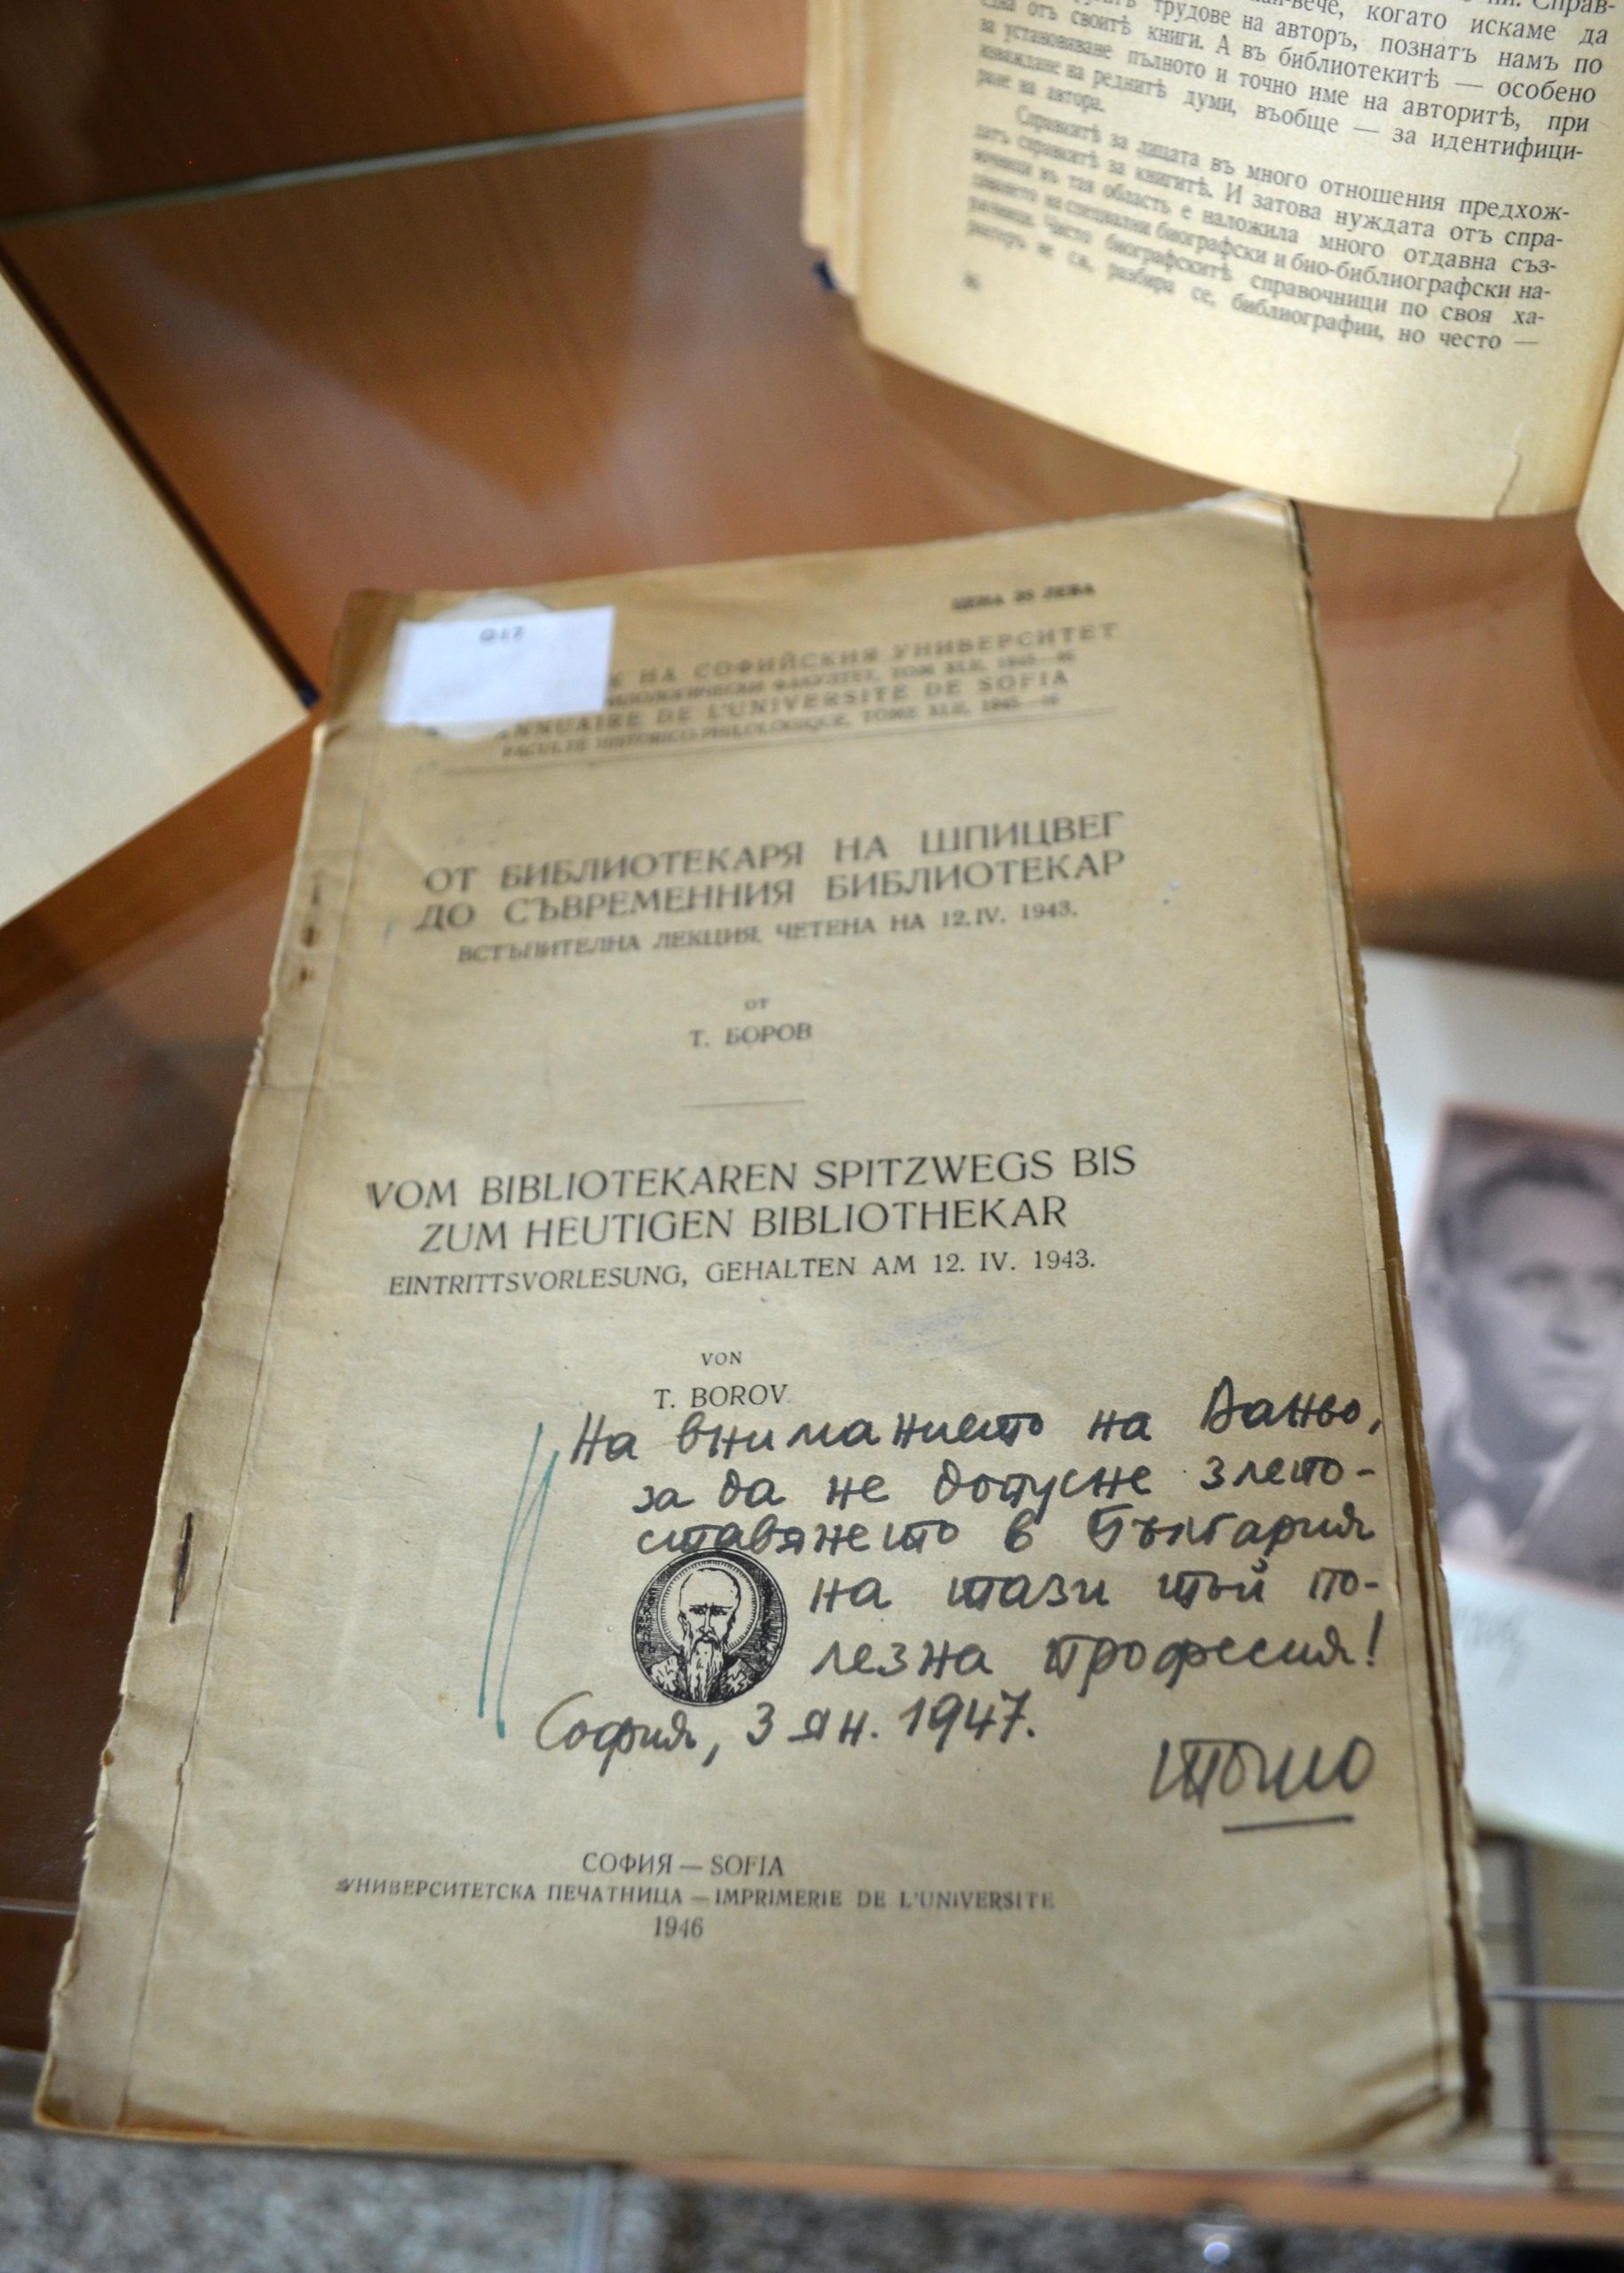 трудове на авторъ, когато искаме да
отъ своитѣ книги. А въ библиотекитѣ — особено
за установяване пълното и точно име на авторитѣ, при
изваждане на реднитѣ думи, въобще — за идентифици-
ране на автора.
Справкитѣ за лицата въ много отношения предхож-
датъ справкитѣ за книгитѣ. И затова нуждата отъ спра-
вочници въ тая область е наложила много отдавна съз-
даването на специални биографски и био-библиографски на-
рѫчници. Чисто биографскитѣ справочници по своя ха-
рактеръ не сѫ, разбира се, библиографии, но често —
ЦЕНА 35 ЛЕВА
НА СОФИЙСКИЯ УНИВЕРСИТЕТ
ФАКУЛТЕТ, ТОМ XLII, 1945—46
ANNUAIRE DE L'UNIVERSITE DE SOFIA
FACULTE HISTORICO-PHILOLOGIQUE, TOME XLII, 1945—46
ОТ БИБЛИОТЕКАРЯ НА ШПИЦВЕГ
ДО СЪВРЕМЕННИЯ БИБЛИОТЕКАР
ВСТЪПИТЕЛНА ЛЕКЦИЯ, ЧЕТЕНА НА 12. IV. 1943.
ОТ
Т. БОРОВ
VOM BIBLIOTEKAREN SPITZWEGS BIS
ZUM HEUTIGEN BIBLIOTHEKAR
EINTRITTSVORLESUNG, GEHALTEN AM 12. IV. 1943.
VON
T. BOROV
На вниманието на Ваньо,
за да не допусне злепо-
ставянето в България
на тази тъй по-
лезна професия!
София, 3 ян. 1947.
Тошо
СОФИЯ — SOFIA
УНИВЕРСИТЕТСКА ПЕЧАТНИЦА — IMPRIMERIE DE L'UNIVERSITE
1946